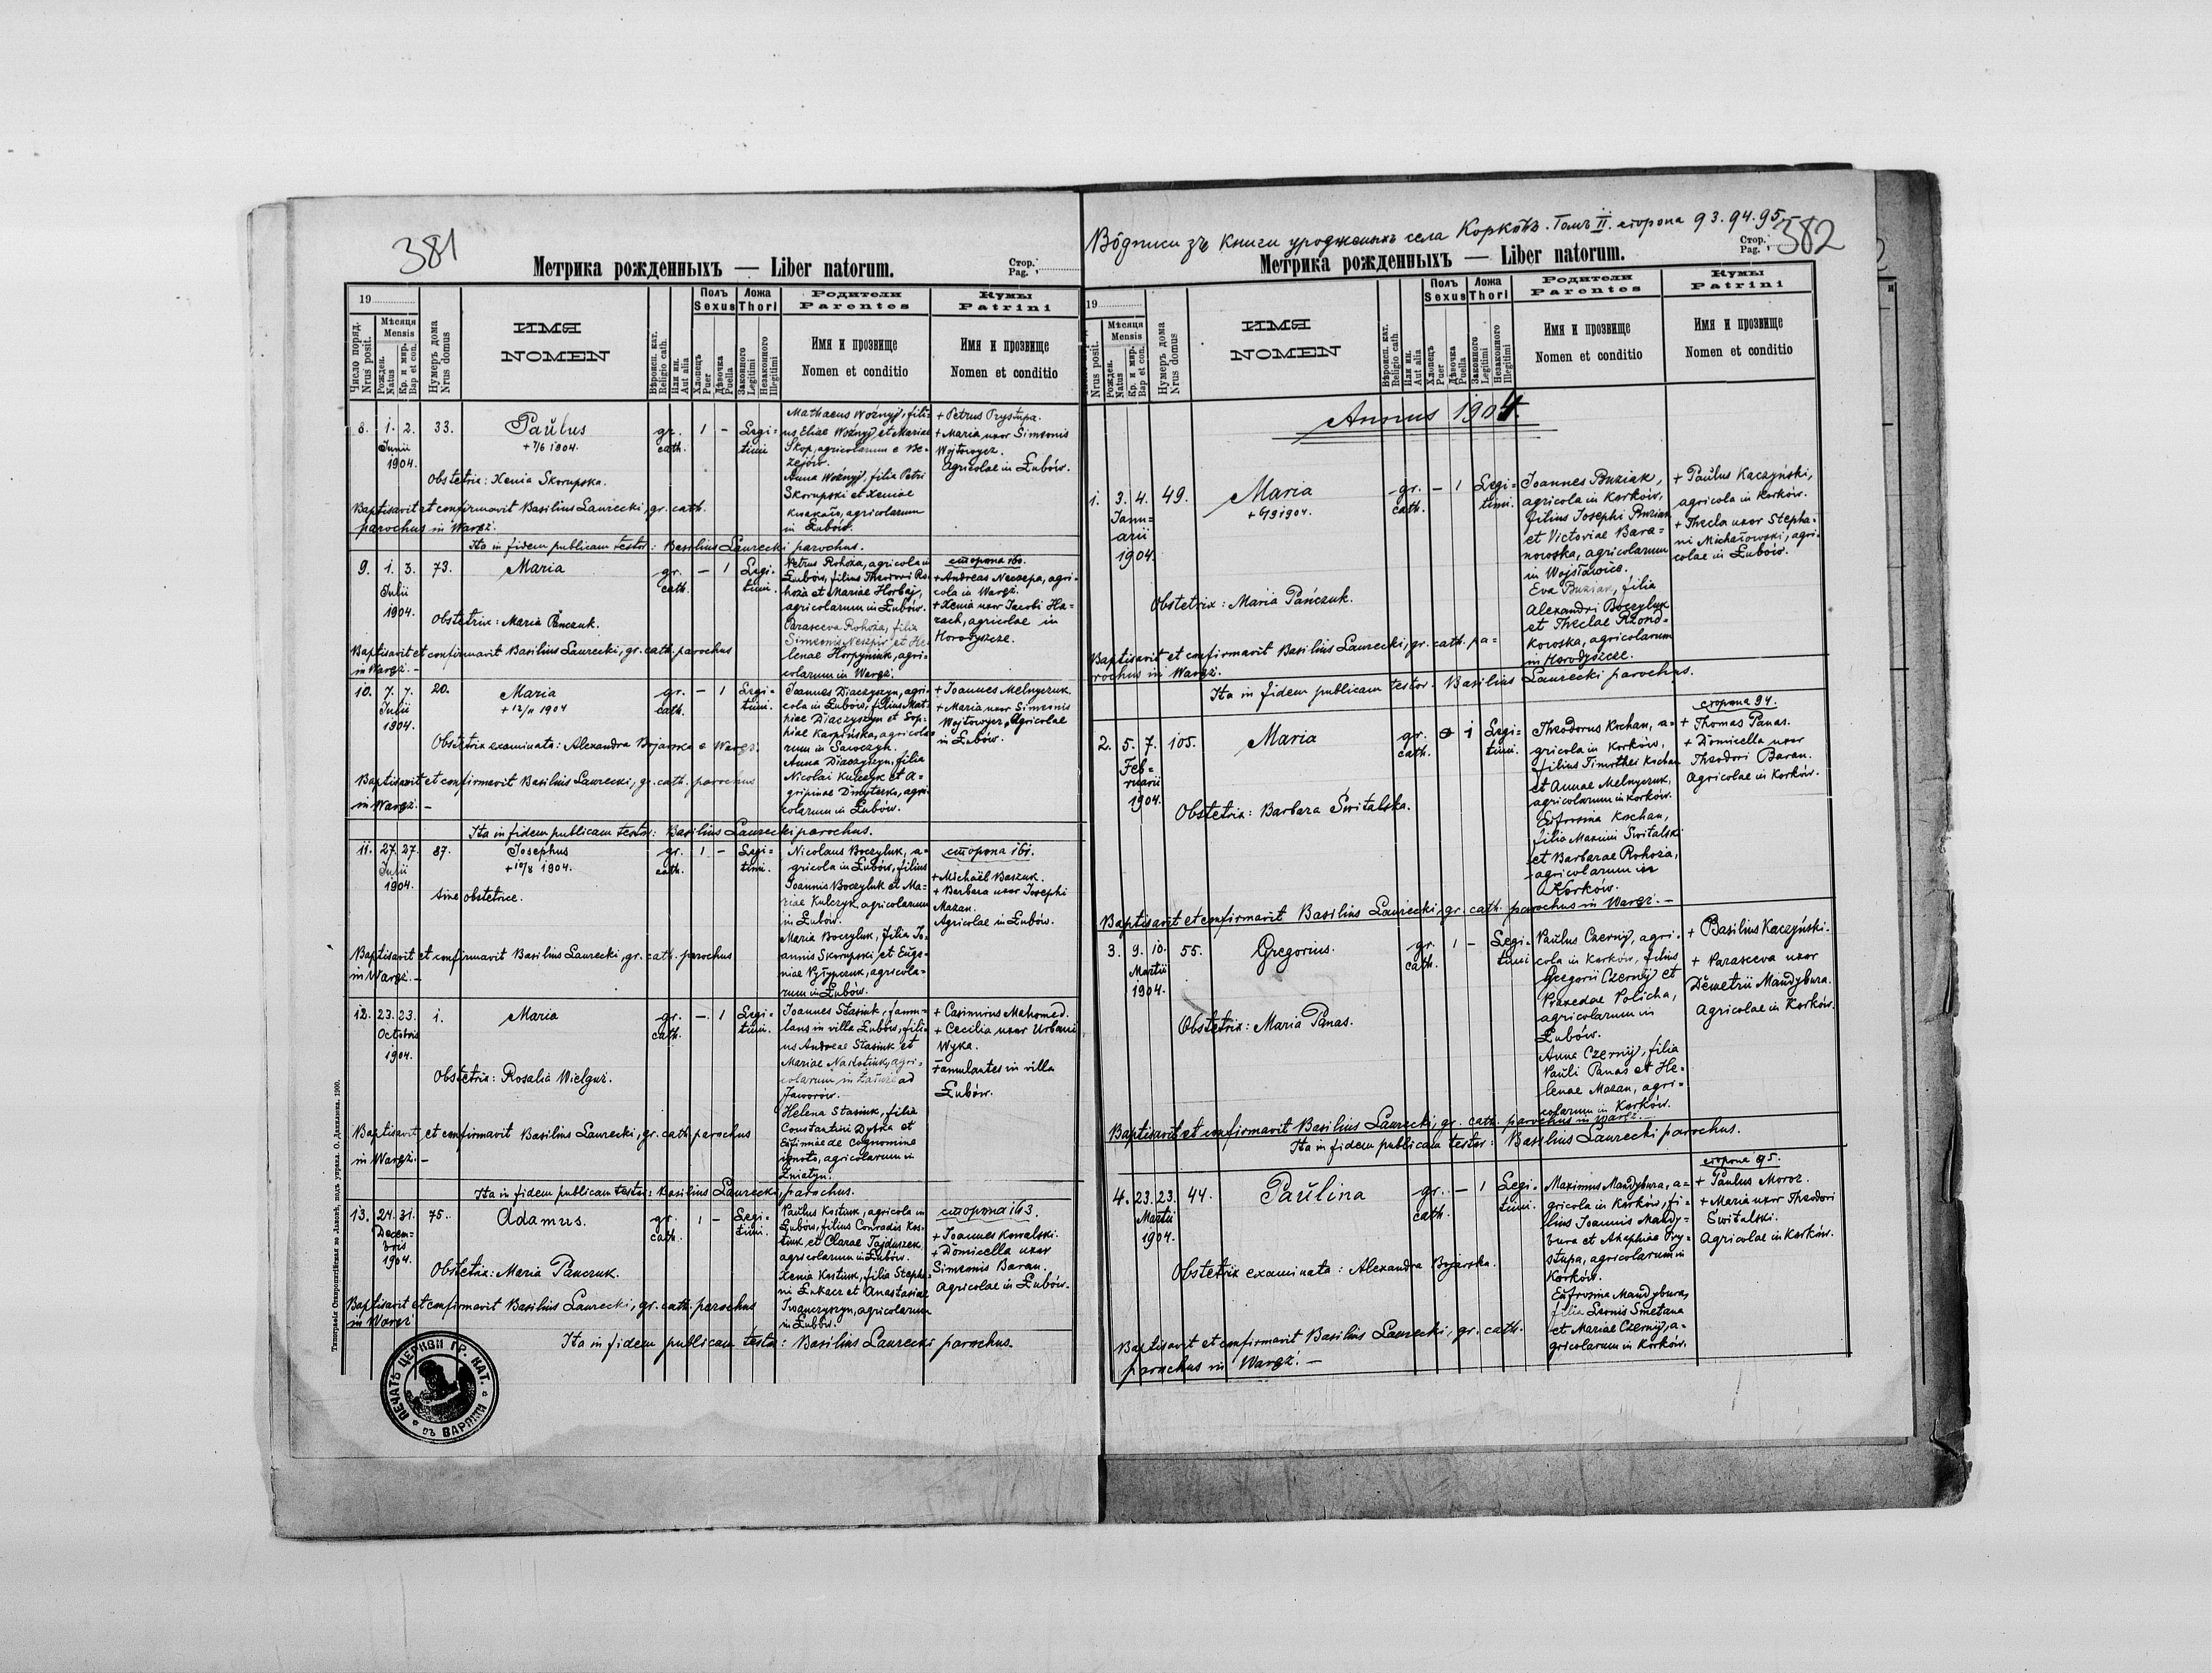 381
Метрика рожденныхъ — Liber natorum.
Стор.
Pag.
19
Число поряд.
Nrus posit.
Мѣсяця
Mensis
Рожден.
Natus
Кр. и мир.
Bap et con.
Нумеръ дома
Nrus domus
ИМЯ
NOMEN
Вѣроисп. кат.
Religio cath.
Или ин.
Aut alia
Полъ
Sexus
Хлопецъ
Puer
Дѣвочка
Puella
Ложа
Thori
Законного
Legitimi
Незаконного
Illegitimi
Родители
Parentes
Имя и прозвище
Nomen et conditio
Кумы
Patrini
Имя и прозвище
Nomen et conditio
8. 1. 2. Junii 1904. 33.
Paŭlus
+ 7/6 1904.
gr. cath. 1 – Legi=
timi
Mathaeus Woźnyj, fili=
us Eliae Woźnyj et Mariae
Skop, agricolarum e Be=
zejów.
Anna Woźnyj, filia Petri
Skorupski et Xeniae
agricolarum
in Łubów.
+ Petrus Przystupa.
+ Maria uxor Simeonis
Wojtowycz.
Agricolae in Łubów.
Obstetrix: Xenia Skorupska.
Baptisavit et confirmavit Basilius Laurecki, gr. cath.
parochus in Waręż.
Ita in fidem publicam testor: Basilius Laurecki parochus.
9. 1. 3. Julii 1904. 73.
Maria
gr. cath. – 1 Legi=
timi.
Petrus Rohoża, agricola in
Łubów, filius Theodori Ro=
hoża et Mariae Horbaj,
agricolarum in Łubów.
Parasceva Rohoża, filia
Simeonis Neszpir et He=
lenae Horpyniuk, agri=
colarum in Waręż.
сторона 160.
+ Andreas Neczepa, agri=
cola in Waręż.
+ Xenia uxor Jacobi Ha=
rach, agricolae in
Horodyszcze.
Obstetrix: Maria Pańczuk.
Baptisavit et confirmavit Basilius Laurecki, gr. cath. parochus
in Waręż. –
10. 7. 7. Julii 1904. 20.
Maria
+ 12/11 1904
gr. cath. – 1 Legi=
timi.
Joannes Diaczyszyn, agri=
cola in Łubów, filius Mat=
hiae Diaczyszyn et Sop=
hiae Karpińska, agricola=
rum in Sawczyn.
Anna Diaczyszyn, filia
Nicolai Kulczyk et A=
gripinae Dmyterko, agri=
colarum in Łubów.
+ Joannes Melnyczuk
+ Maria uxor Simeonis
Wojtowycz, Agricolae
in Łubów.
Obstetrix examinata: Alexandra Bojarska e Waręż.
Baptisavit et confirmavit Basilius Laurecki, gr. cath. parochus
in Waręż. –
Ita in fidem publicam testor: Basilius Laurecki parochus.
11. 27. 27. Julii 1904. 87.
Josephus
+ 10/8 1904.
gr. cath. 1 – Legi=
timi.
Nicolaus Boczyluk, a=
gricola in Łubów, filius
Joannis Boczyluk et Ma=
riae Kulczyk, agricolarum
in Łubów.
Maria Boczyluk, filia Jo=
annis Skorupski et Euge=
niae Pyłypczuk, agricola=
rum in Łubów.
сторона 161.
+ Michaël Baszuk.
+ Barbara uxor Josephi
Mazan.
Agricolae in Łubów.
sine obstetrice.
Baptisavit et confirmavit Basilius Laurecki, gr. cath. parochus
in Waręż. –
12. 23. 23. Octobris 1904. 1.
Maria
gr. cath. – 1 Legi=
timi.
Joannes Stasiuk, famu=
lans in villa Łubów, fili=
us Andreae Stasiuk et
Mariae agri=
colarum in ad
Jaworow.
Helena Stasiuk, filia
Constantini Dytka et
Eufimiae de cognomine
ignoto, agricolarum in
Żniatyn.
+ Casimirus Mahomed.
+ Cecilia uxor Urbani
Wyka.
Famulantes in villa
Łubów.
Obstetrix: Rosalia Wielgusz.
Baptisavit et confirmavit Basilius Laurecki, gr. cath. parochus
in Waręż. –
Ita in fidem publicam testor: Basilius Laurecki, parochus.
13. 24. 31. Decem=
bris 1904. 75.
Adamus.
gr. cath. 1 – Legi=
timi.
Paŭlus Kostiuk, agricola in
Łubów, filius Conradis Kos=
tiuk et Clarae Tajduszek
agricolarum in Łubów.
Xenia Kostiuk, filia Stepha=
ni Łukacz et Anastasiae
Iwanczyszyn, agricolarum
in Łubów.
сторона 163.
+ Joannes Kowalski.
+ Domicella uxor
Simeonis Baran.
Agricolae in Łubów.
Obstetrix: Maria Panczuk.
Baptisavit et confirmavit Basilius Laurecki, gr. cath. parochus
in Waręż
Ita in fidem publicam testor: Basilius Laurecki parochus.
ПЕЧАТЬ ЦЕРКВИ ГР. КАТ. въ ВАРЯЖИ
Типографія Ставропигійская во Львовѣ, подъ управл. О. Данилюка. 1900.
Вôдписи зъ книги уродженыхъ села Корковъ. Томъ II. сторона 93. 94. 95
382
Метрика рожденныхъ — Liber natorum.
Стор.
Pag.
19
Nrus posit.
Мѣсяця
Mensis
Рожден.
Natus
Кр. и мир.
Bap et con.
Нумеръ дома
Nrus domus
ИМЯ
NOMEN
Вѣроисп. кат.
Religio cath.
Или ин.
Aut alia
Полъ
Sexus
Хлопецъ
Puer
Дѣвочка
Puella
Ложа
Thori
Законного
Legitimi
Незаконного
Illegitimi
Родители
Parentes
Имя и прозвище
Nomen et conditio
Кумы
Patrini
Имя и прозвище
Nomen et conditio
Annus 1904.
1. 3. 4. Janu=
arii 1904. 49.
Maria
gr. cath. – 1 Legi=
timi.
Joannes Buziak,
agricola in Korków,
filius Josephi Buziak
et Victoriae Bara=
nowska, agricolarum
in Wojsławice.
Eva Buziak, filia
Alexandri Boczyluk
et Theclae Rzond=
kowska, agricolarum
in Horodyszcze.
+ Paŭlus Kaczyński,
agricola in Korków.
+ Thecla uxor Stepha=
ni Michałowski, agri=
colae in Łubów.
Obstetrix: Maria Pańczuk.
Baptisavit et confirmavit Basilius Laurecki, gr. cath. pa=
rochus in Waręż.
Ita in fidem publicam testor. Basilius Laurecki parochus.
2. 5. 7. Feb=
ruarii 1904. 105.
Maria
gr. cath. 1 Legi=
timi.
Theodorus Kochan, a=
gricola in Korków,
filius Timothei Kochan
et Annae Melnyczuk,
agricolarum in Korków.
Eufrosina Kochan,
filia Maximi Switalski
et Barbarae Rohoża,
agricolarum in
Korków.
сторона 94.
+ Thomas Panas.
+ Domicella uxor
Theodori Baran.
Agricolae in Korków.
Obstetrix: Barbara Switalska.
Baptisavit et confirmavit Basilius Laurecki, gr. cath. parochus in Waręż. –
3. 9. 10. Martii 1904. 55.
Gregorius.
gr. cath. 1 – Legi=
timi
Paŭlus Czernyj, agri=
cola in Korków, filius
Gregorii Czernyj et
Praxedae Policha,
agricolarum in
Łubów.
Anna Czernyj, filia
Paŭli Panas et He=
lenae Mazan, agri=
colarum in Korków.
+ Basilius Kaczyński.
+ Parasceva uxor
Demetrii Mandybura.
Agricolae in Korków.
Obstetrix: Maria Panas.
Baptisavit et confirmavit Basilius Laurecki, gr. cath. parochus in Waręż. –
Ita in fidem publicam testor: Basilius Laurecki parochus.
4. 23. 23. Martii 1904. 44.
Paŭlina
gr. cath. – 1 Legi=
timi.
Maximus Mandybura, a=
gricola in Korków, fi=
lius Joannis Mandy=
bura et Ahaphiae Pry=
stupa, agricolarum in
Korków.
Eufrosina Mandybura,
filia Leonis Smetana
et Mariae Czernyj, a=
gricolarum in Korków.
сторона 95.
+ Paŭlus Moroz.
+ Maria uxor Theodori
Switalski.
Agricolae in Korków.
Obstetrix examinata: Alexandra Bojarska.
Baptisavit et confirmavit Basilius Laurecki, gr. cath.
parochus in Waręż. –